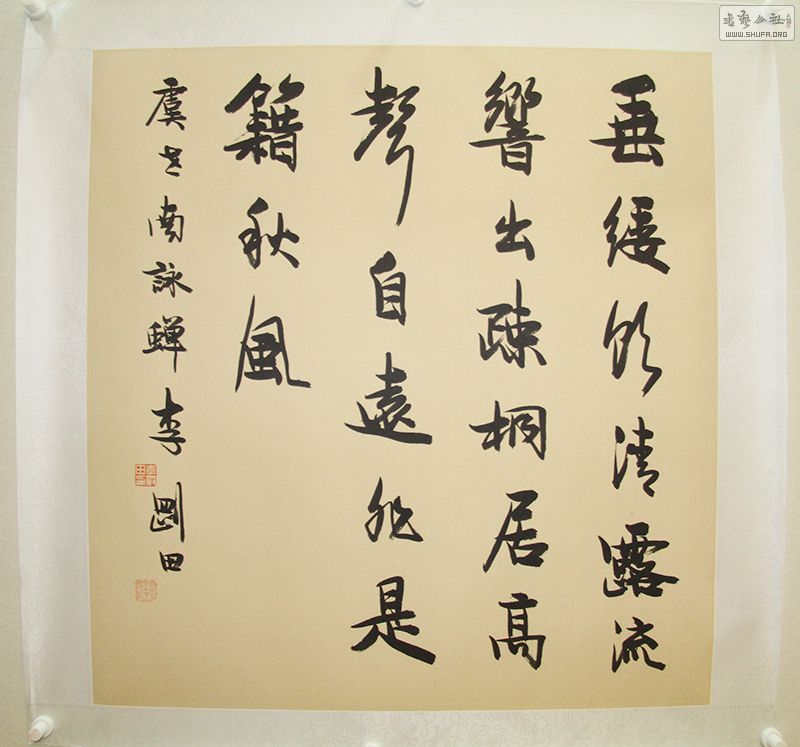 垂緌飲清露流
響出疎桐居高
聲自遠非是
籍秋風
虞世南詠蟬李剛田
書藝公社
WWW.SHUFA.ORG